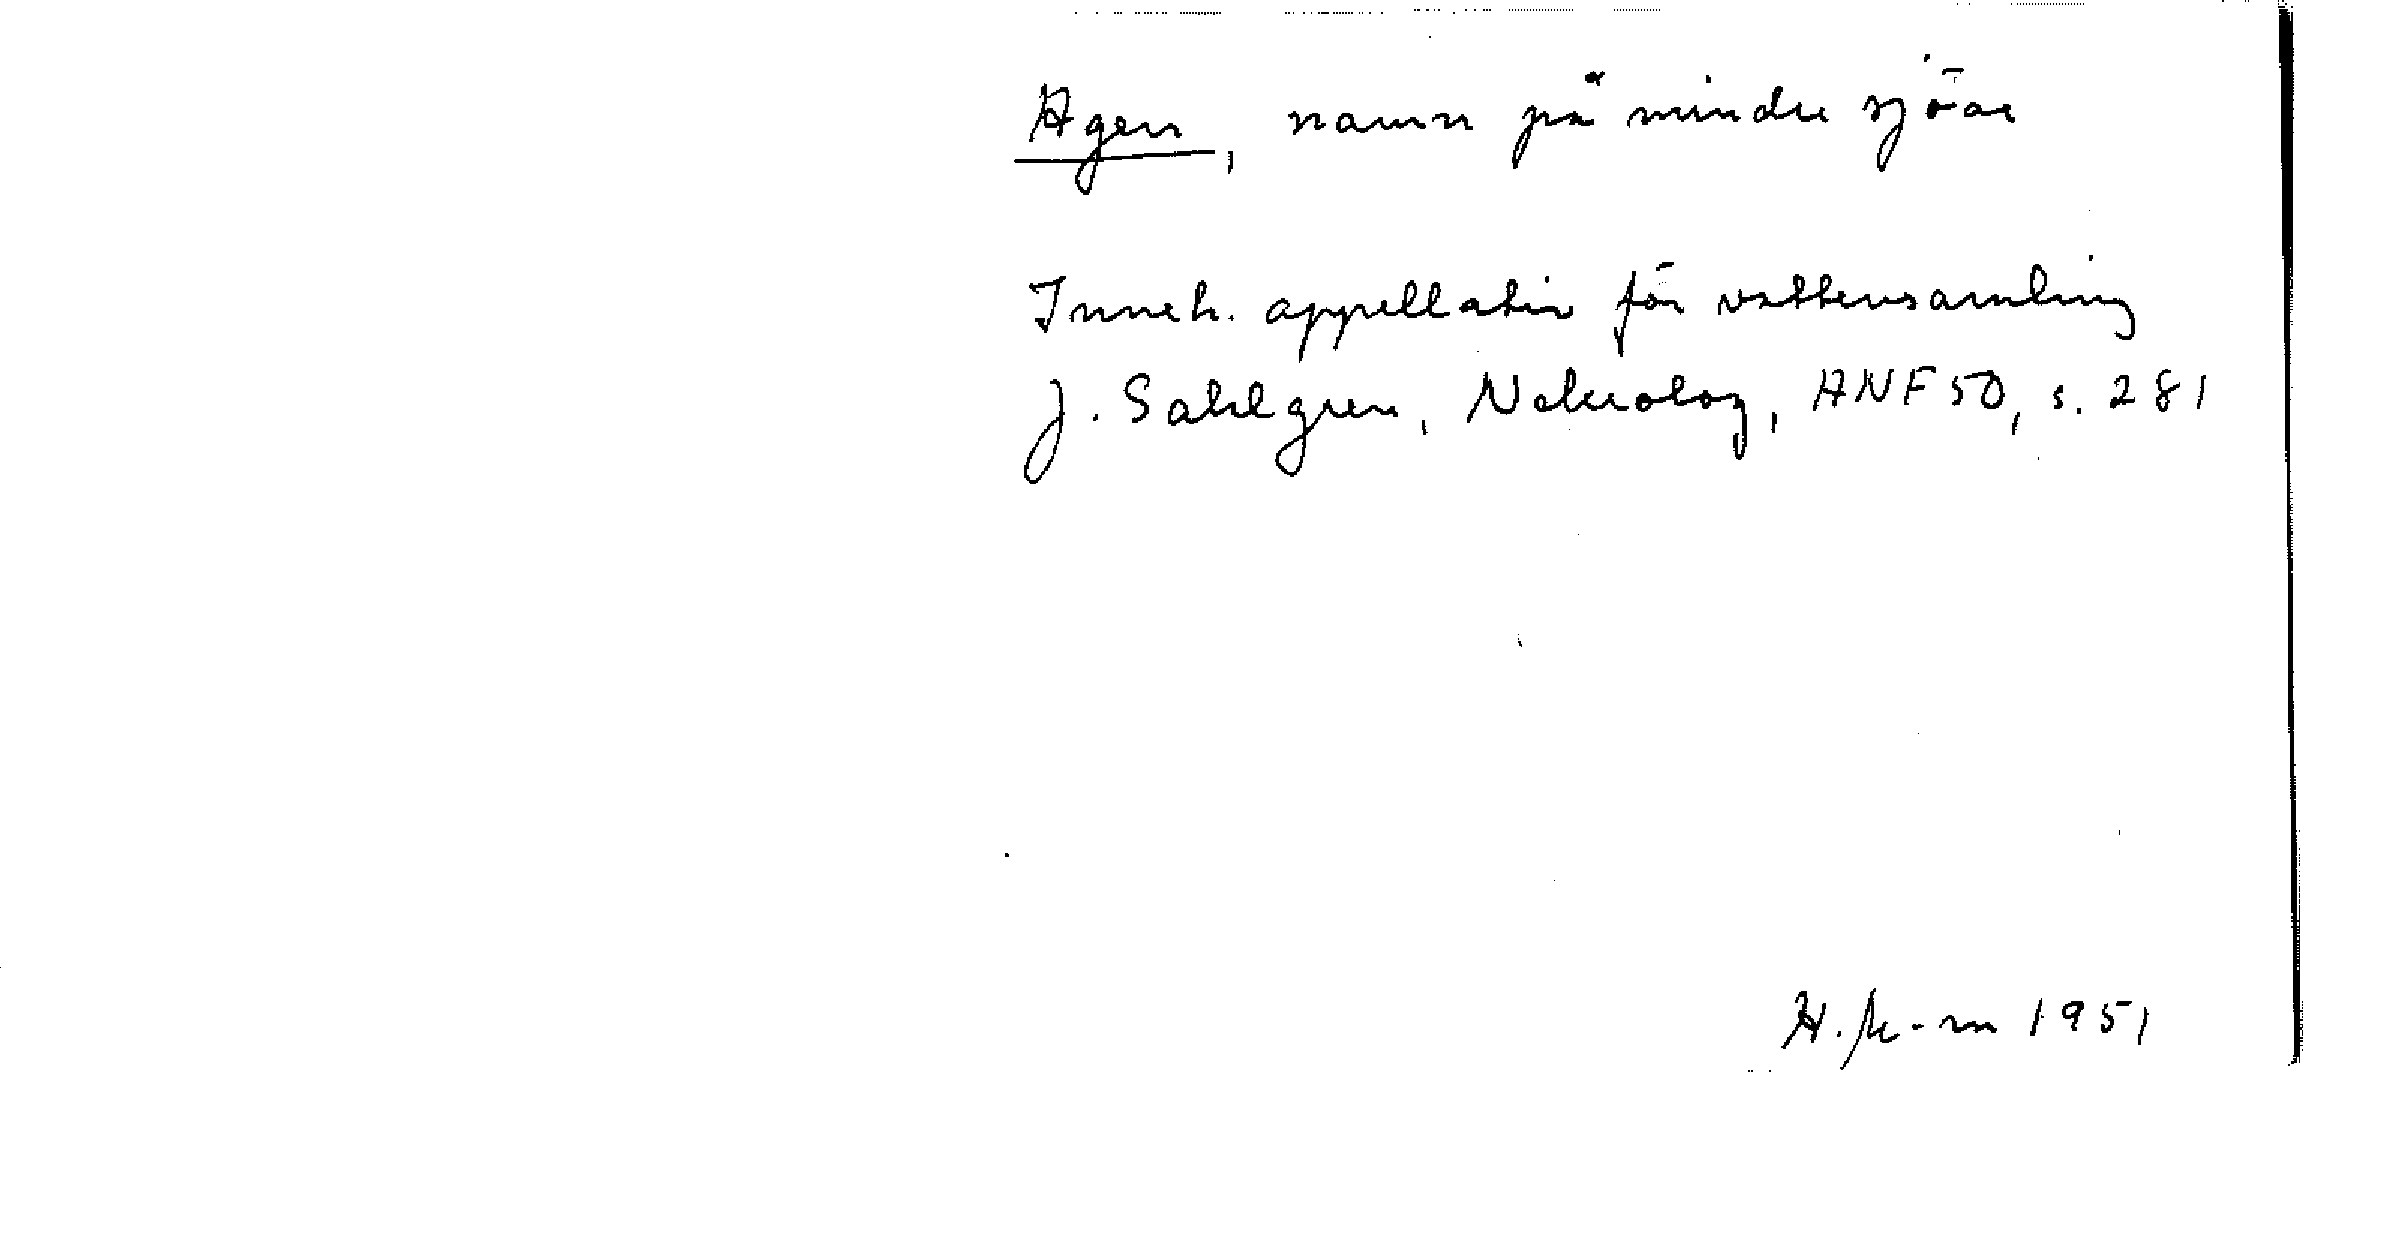 Agen, namn på mindre sjöar
Inneh. appellativ för vattensamling
J. Sahlgren, Nekrolog, ANF 50, s. 281
1951